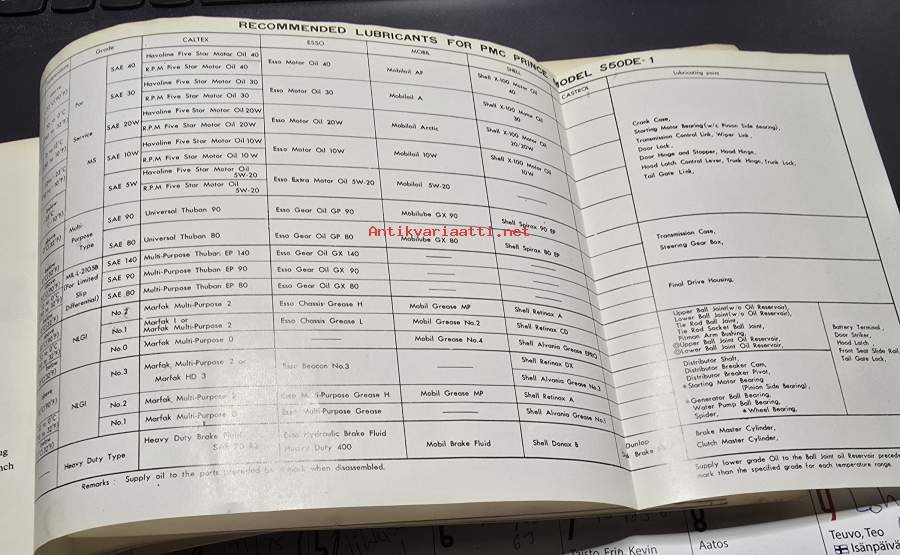 RECOMMENDED LUBRICANTS FOR PMC PRINCE MODEL S50DE-1
Grade CALTEX ESSO MOBIL SHELL CASTROL Lubricating point
For Service MS
SAE 40 Havoline Five Star Motor Oil 40 Esso Motor Oil 40 Mobiloil AF Shell X-100 Motor Oil 40
R.P.M Five Star Motor Oil 40
SAE 30 Havoline Five Star Motor Oil 30 Esso Motor Oil 30 Mobiloil A Shell X-100 Motor Oil 30
R.P.M Five Star Motor Oil 30
SAE 20W Havoline Five Star Motor Oil 20W Esso Motor Oil 20W Mobiloil Arctic Shell X-100 Motor Oil 20/20W
R.P.M Five Star Motor Oil 20W
SAE 10W Havoline Five Star Motor Oil 10W Esso Motor Oil 10W Mobiloil 10W Shell X-100 Motor Oil 10W
R.P.M Five Star Motor Oil 10W
SAE 5W Havoline Five Star Motor Oil 5W-20 Esso Extra Motor Oil 5W-20 Mobiloil 5W-20
R.P.M Five Star Motor Oil 5W-20
Crank Case,
Starting Motor Bearing (w/c Pinion Side bearing),
Transmission Control Link, Wiper Link,
Door Lock,
Door Hinge and Stopper, Hood Hinge,
Hood Latch Control Lever, Trunk Hinge, Trunk Lock,
Tail Gate Link,
Multi-Purpose Type
SAE 90 Universal Thuban 90 Esso Gear Oil GP 90 Mobilube GX 90 Shell Spirax 90 EP
SAE 80 Universal Thuban 80 Esso Gear Oil GP 80 Mobilube GX 80 Shell Spirax 80 EP
Transmission Case,
Steering Gear Box,
Antikvariaatti.net
MIL-L-2105B (For Limited Slip Differential)
SAE 140 Multi-Purpose Thuban EP 140 Esso Gear Oil GX 140
SAE 90 Multi-Purpose Thuban EP 90 Esso Gear Oil GX 90
SAE 80 Multi-Purpose Thuban EP 80 Esso Gear Oil GX 80
Final Drive Housing,
NLGI
No.2 Marfak Multi-Purpose 2 Esso Chassis Grease H Mobil Grease MP Shell Retinax A
No.1 Marfak 1 or Marfak Multi-Purpose 2 Esso Chassis Grease L Mobil Grease No.2 Shell Retinax CD
No.0 Marfak Multi-Purpose 0 Mobil Grease No.4 Shell Alvania Grease EPRO
Upper Ball Joint(w/o Oil Reservoir),
Lower Ball Joint(w/o Oil Reservoir),
Tie Rod Ball Joint,
Tie Rod Socket Ball Joint,
Pitman Arm Bushing,
◎Upper Ball Joint Oil Reservoir,
◎Lower Ball Joint Oil Reservoir,
Battery Terminal,
Door Striker,
Hood Latch,
Front Seat Slide Rail,
Tail Gate Lock,
NLGI
No.3 Marfak Multi-Purpose 2 or Marfak HD 3 Esso Beacon No.3 Shell Retinax DX
Shell Alvania Grease No.3
No.2 Marfak Multi-Purpose Esso Multi-Purpose Grease H Mobil Grease MP Shell Retinax A
No.1 Marfak Multi-Purpose Esso Multi-Purpose Grease Shell Alvania Grease No.1
Distributor Shaft,
Distributor Breaker Cam,
Distributor Breaker Pivot,
*Starting Motor Bearing
(Pinion Side Bearing),
*Generator Ball Bearing,
Water Pump Ball Bearing,
Spider, *Wheel Bearing,
Heavy Duty Type Heavy Duty Brake Fluid Esso Hydraulic Brake Fluid Heavy Duty 400 Mobil Brake Fluid Shell Donax B Dunlop Brake
Brake Master Cylinder,
Clutch Master Cylinder,
Remarks : Supply oil to the parts preceded mark when disassembled.
Supply lower grade Oil to the Ball Joint oil Reservoir
mark than the specified grade for each temperature range.
Erin, Kevin
8
Aatos
9
Teuvo, Teo
Isänpäivä